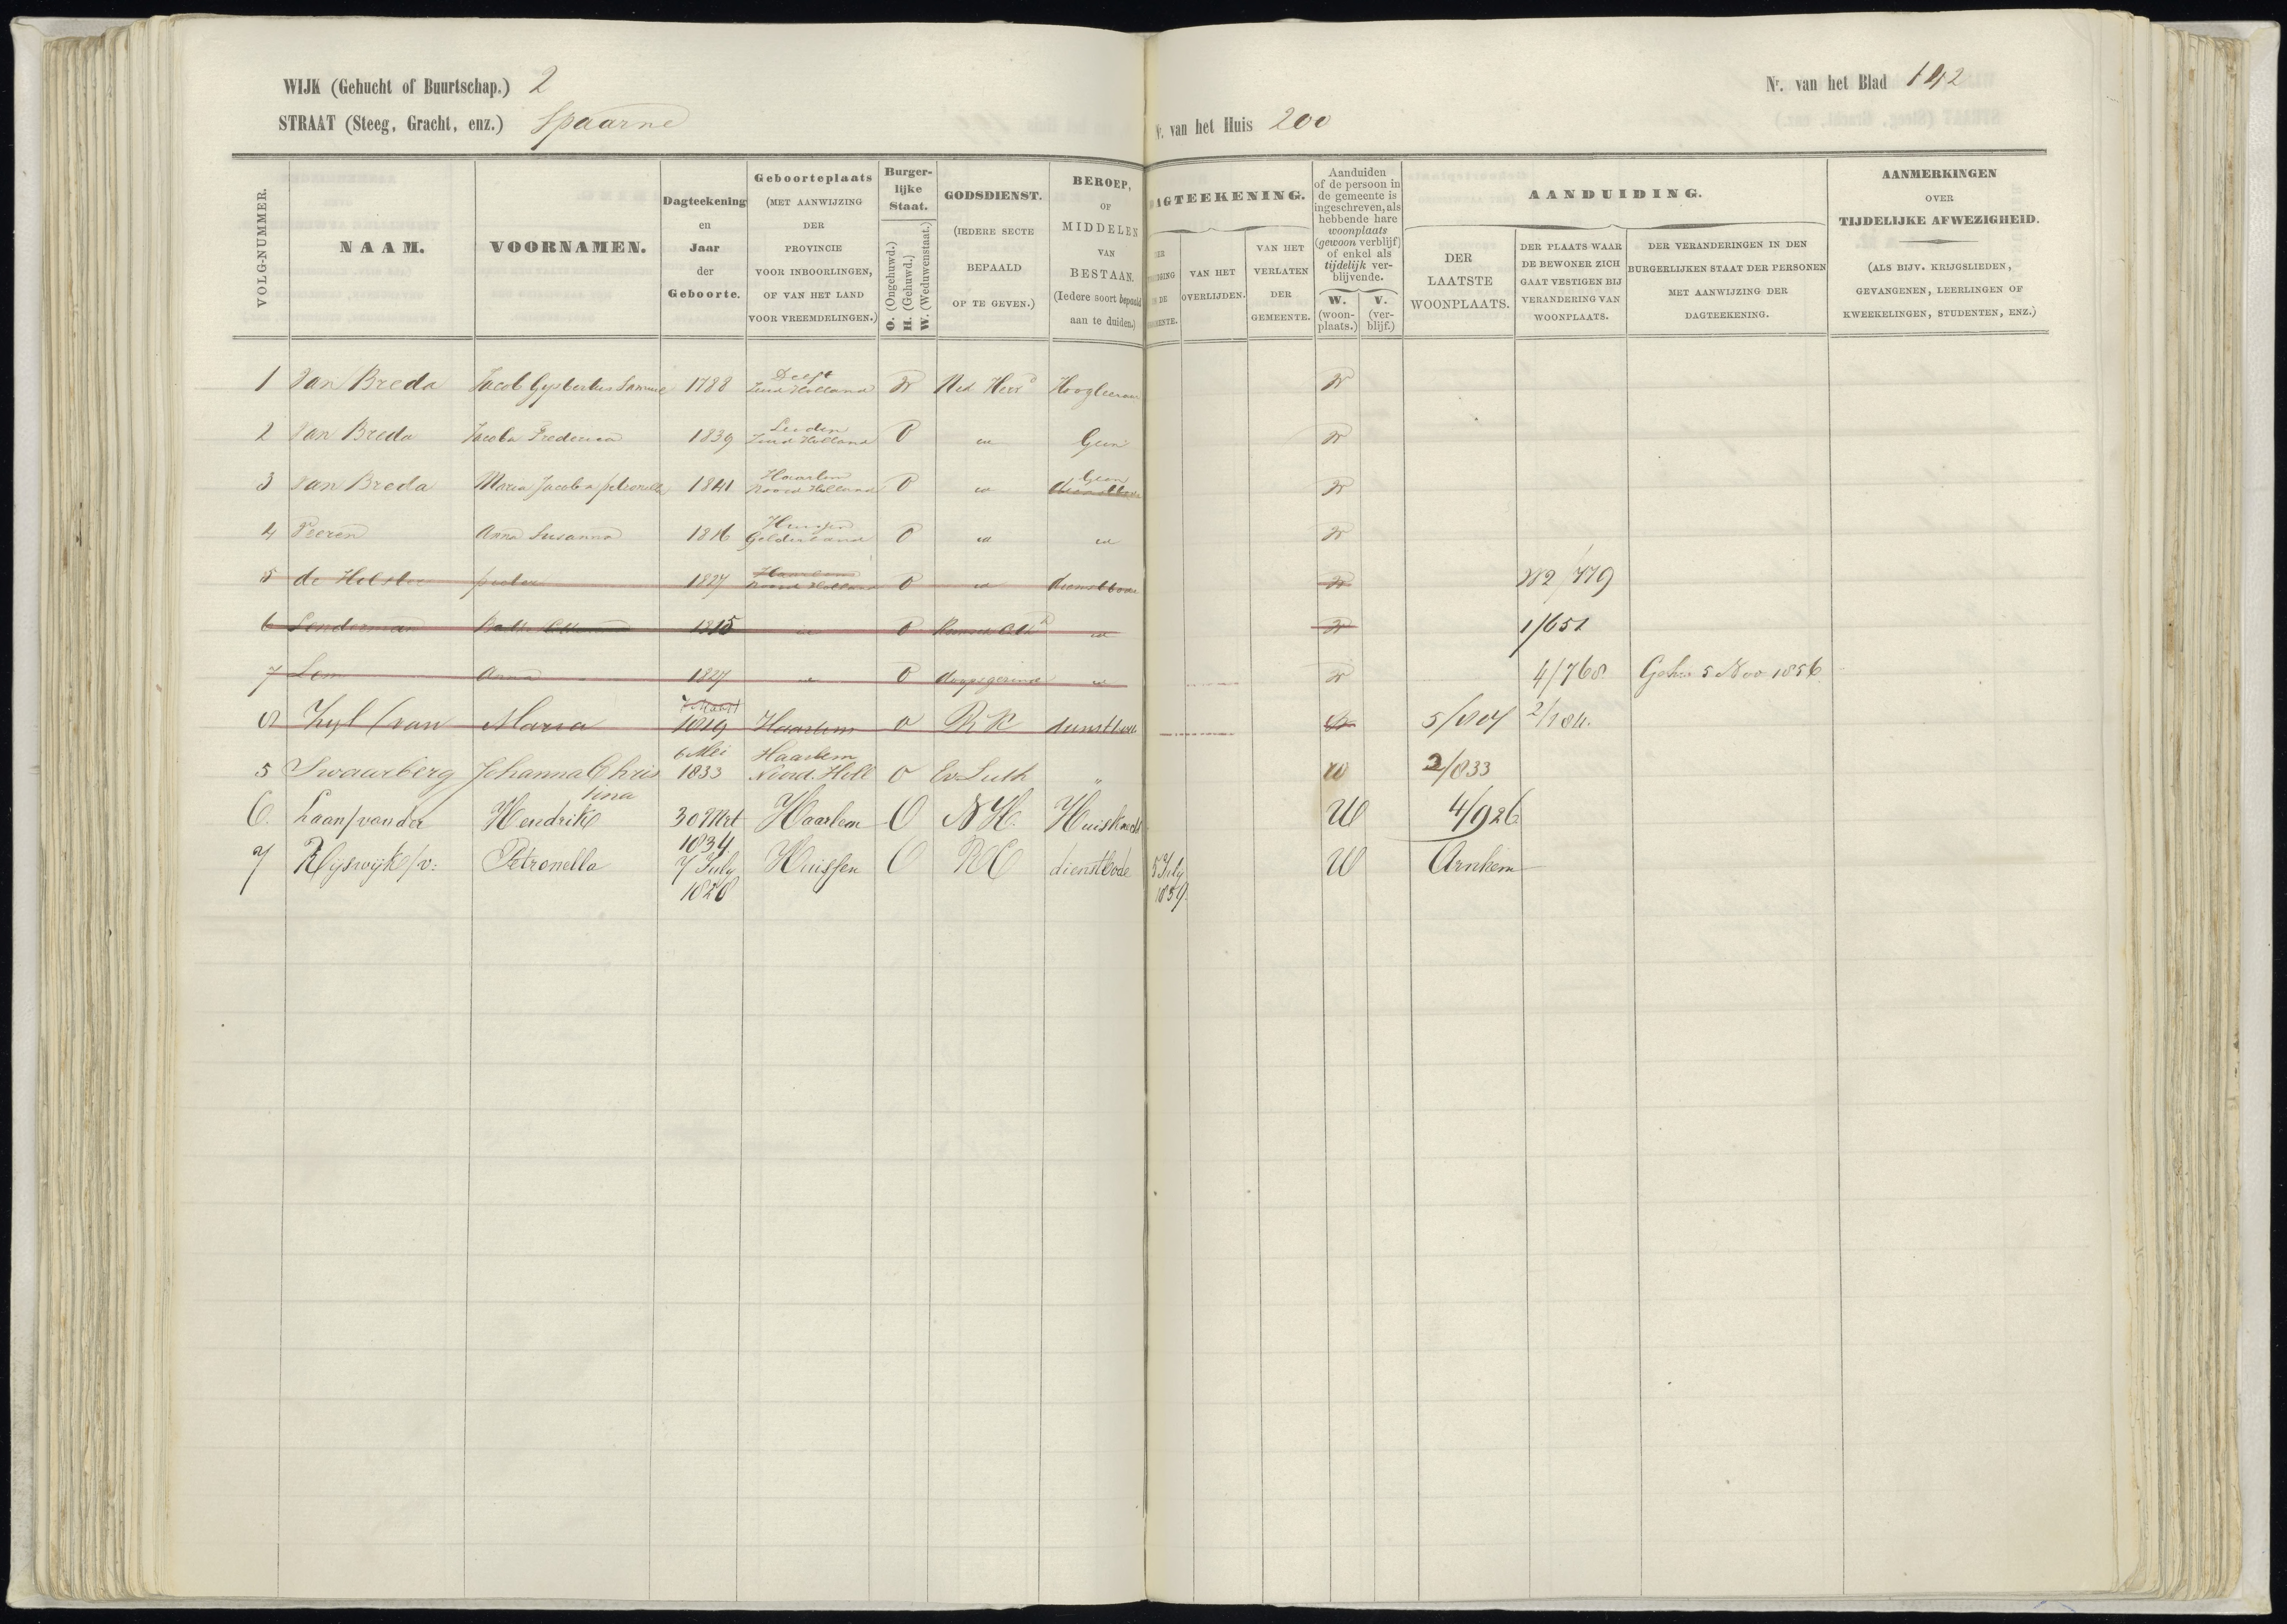 WIJK (Gehucht of Buurtschap.) 2
STRAAT (Steeg, Gracht, enz.) Spaarne
Nr. van het Blad 142
Nr. van het Huis 200
VOLG-NUMMER.
NAAM.
VOORNAMEN.
Dagteekening
en
Jaar
der
Geboorte.
Geboorteplaats
(MET AANWIJZING
DER
PROVINCIE
VOOR INBOORLINGEN,
OF VAN HET LAND
VOOR VREEMDELINGEN.)
Burger-
lijke
Staat.
O. (Ongehuwd.)
H. (Gehuwd.)
W. (Weduwenstaat.)
GODSDIENST.
(IEDERE SECTE
BEPAALD
OP TE GEVEN.)
BEROEP,
OF
MIDDELEN
VAN
BESTAAN.
(Iedere soort bepaald
aan te duiden.)
AGTEEKENING.
DER
DE
VAN HET
OVERLIJDEN.
VAN HET
VERLATEN
DER
GEMEENTE.
Aanduiden
of de persoon in
de gemeente is
ingeschreven, als
hebbende hare
woonplaats
(gewoon verblijf)
of enkel als
tijdelijk ver-
blijvende.
W.
(woon-
plaats.)
V.
(ver-
blijf.)
AANDUIDING.
DER
LAATSTE
WOONPLAATS.
DER PLAATS WAAR
DE BEWONER ZICH
GAAT VESTIGEN BIJ
VERANDERING VAN
WOONPLAATS.
DER VERANDERINGEN IN DEN
BURGERLIJKEN STAAT DER PERSONEN
MET AANWIJZING DER
DAGTEEKENING.
AANMERKINGEN
OVER
TIJDELIJKE AFWEZIGHEID.
(ALS BIJV. KRIJGSLIEDEN,
GEVANGENEN, LEERLINGEN OF
KWEEKELINGEN, STUDENTEN, ENZ.)
1 Van Breda Jacob Gysbertus Samuel 1788 Delft Zuid Holland W Ned Herv Hoogleeraar W
2 Van Breda Jacoba Frederica 1839 Leiden Zuid Holland O Geen W
3 van Breda Maria Jacoba petronella 1841 Haarlem Noord Holland O Geen dienstbode W
4 Peeren Anna Susanna 1816 Huissen Gelderland O W
5 de Holster pieter 1827 Haarlem Noord Holland O dienstbode W W2/779
6 Lenderman 1815 O W 1/651
7 Lem Anna 1827 O doopsgezind W 4/768 Gehw 5 Nov 1856
8 Zyl (van Maria 7 Maart 1819 Haarlem O RK dienstbode W 5/804 2/184.
5 Swaarberg Johanna Chris
tina 6 Mei 1833 Haarlem Noord. Holl O Ev. Luth " W 2/833
6. Laan/vander Hendrik 30 Mrt 1834 Haarlem O NH. Huisknecht W 4/926
7 Rijswijk/v: Petronella 7 July 1828 Huissen O RC dienstbode 5 July 1859 W Arnhem